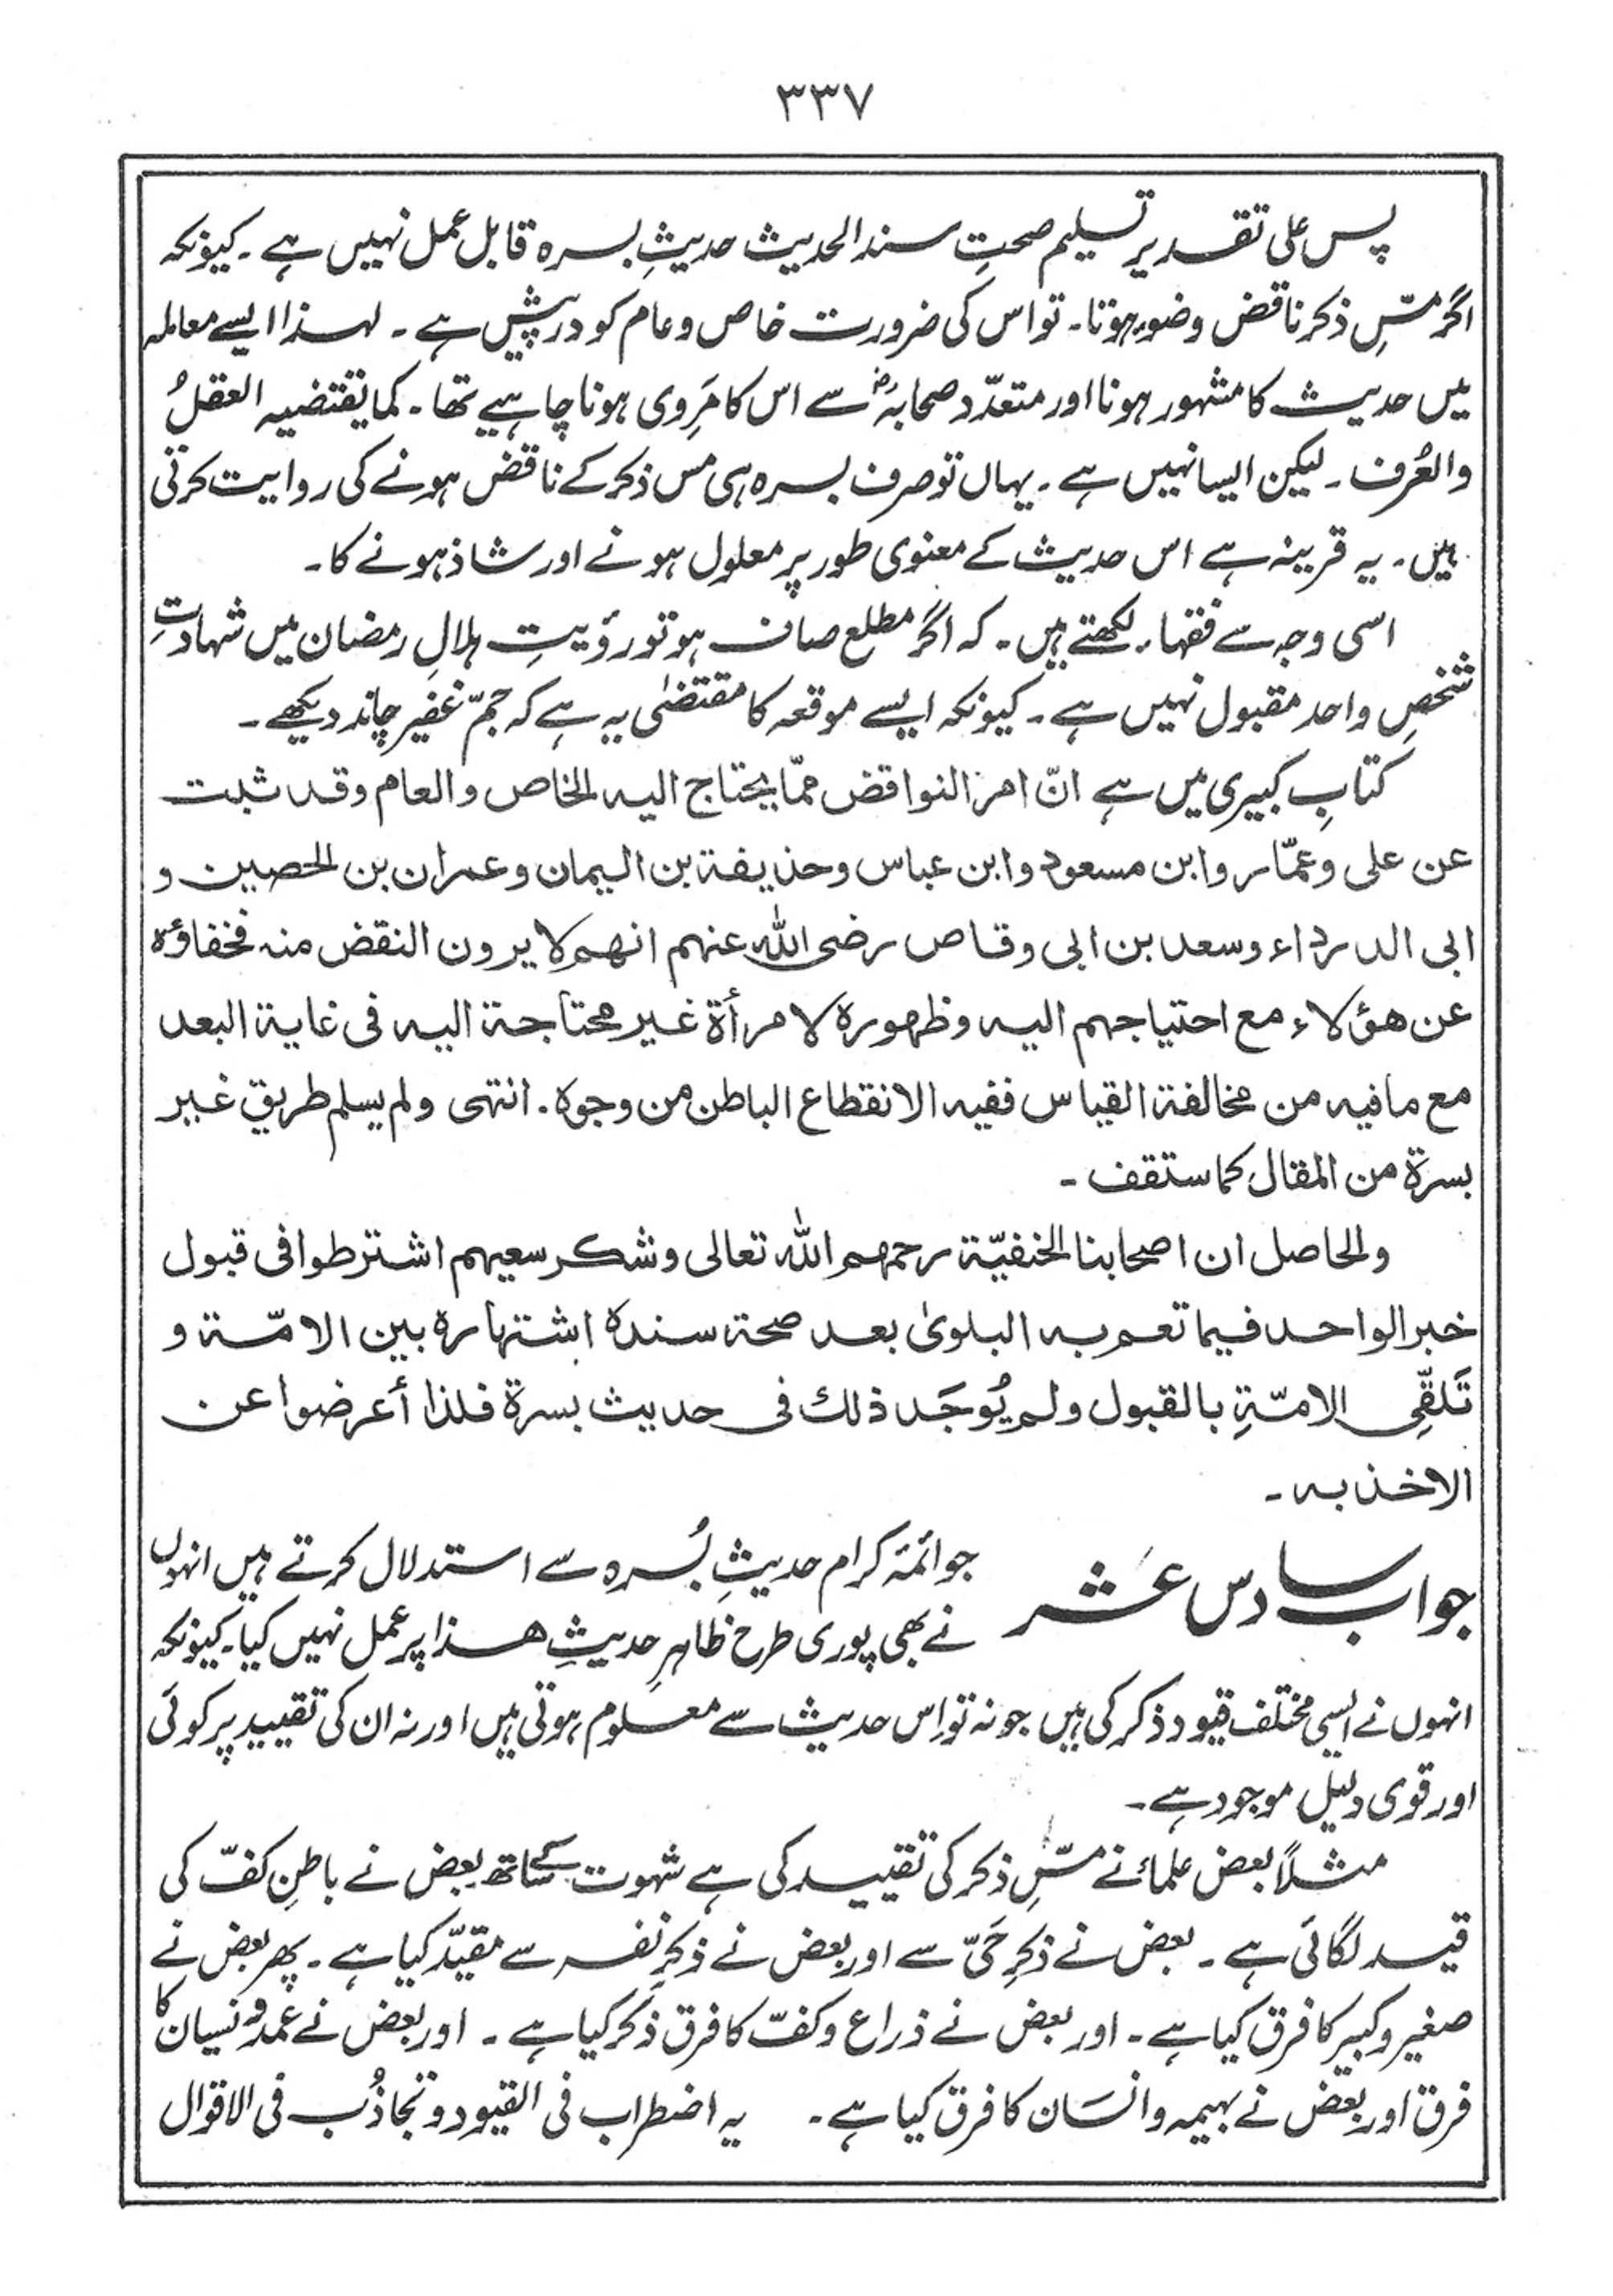 ۳۳۷
پس علی تقدیر تسلیم صحتِ سند الحدیث حدیثِ بسرہ قابل عمل نہیں ہے ۔ کیونکہ
اگر مسّ ِ ذکر ناقض وضوء ہوتا ۔ تو اس کی ضرورت خاص و عام کو درپیش ہے ۔ لہذا ایسے معاملہ
میں حدیث کا مشہور ہونا اور متعدّد صحابہؓ سے اس کا مَروِی ہونا چاہیے تھا ۔ کما یقتضیہ العقلُ
والعُرف ۔ لیکن ایسا نہیں ہے ۔ یہاں تو صرف بسرہ ہی مس ذکر کے ناقض ہونے کی روایت کرتی
ہیں ۔ یہ قرینہ ہے اس حدیث کے معنوی طور پر معلول ہونے اور شاذ ہونے کا ۔
اسی وجہ سے فقہاء لکھتے ہیں ۔ کہ اگر مطلع صاف ہو تو رؤیتِ ہلالِ رمضان میں شہادتِ
شخصِ واحد مقبول نہیں ہے ۔ کیونکہ ایسے موقعہ کا مقتضٰی یہ ہے کہ جمّ غفیر چاند دیکھے ۔
کتابِ کبیری میں ہے انّ امر النواقض ممّا یحتاج الیہ الخاص والعام وقد ثبت
عن علی وعمّار وابن مسعود وابن عباس وحذیفة بن الیمان وعمران بن الحصین و
ابی الدرداء وسعد بن ابی وقاص رضی اللہ عنہم انھم لا یرون النقض منہ فخفاؤہ
عن ھؤلاء مع احتیاجہم الیہ وظھورہ لامرأة غیر محتاجة الیہ فی غایة البعد
مع مافیہ من مخالفة القیاس ففیہ الانقطاع الباطن من وجوہ . انتھی ولم یسلم طریق غیر
بسرة من المقال کما ستقف ۔
والحاصل ان اصحابنا الحنفیّة رحمھم اللہ تعالی وشکر سعیہم اشترطوا فی قبول
خبر الواحد فیما تعم بہ البلویٰ بعد صحة سندہ اشتہارہ بین الامّة و
تَلقِّی الامّةِ بالقبول ولم یُوجَد ذلك فی حدیث بسرة فلذا أعرضوا عن
الاخذ بہ ۔
جواب سادس عَشر جو ائمۂ کرام حدیثِ بُسرہ سے استدلال کرتے ہیں انہوں
نے بھی پوری طرح ظاہرِ حدیثِ ھذا پر عمل نہیں کیا ۔ کیونکہ
انہوں نے ایسی مختلف قیود ذکر کی ہیں جو نہ تو اِس حدیث سے معلوم ہوتی ہیں اور نہ ان کی تقیید پر کوئی
اور قوی دلیل موجود ہے ۔
مثلاً بعض علماء نے مسّ ِ ذکر کی تقیید کی ہے شہوت کے ساتھ بعض نے باطنِ کفّ کی
قید لگائی ہے ۔ بعض نے ذکرِ حَیّ سے اور بعض نے ذکرِ نفسہ سے مقیّد کیا ہے ۔ پھر بعض نے
صغیر و کبیر کا فرق کیا ہے ۔ اور بعض نے ذراع و کفّ کا فرق ذکر کیا ہے ۔ اور بعض نے عمد و نسیان کا
فرق اور بعض نے بہیمہ و انسَان کا فرق کیا ہے ۔ یہ اضطراب فی القیود و تجاذُب فی الاقوال